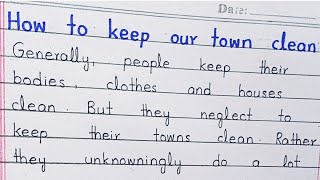 Date:
How to keep our town clean
Generally, people keep their
bodies, clothes and houses
clean. But they neglect to
keep their towns clean. Rather
they unknowningly do a lot